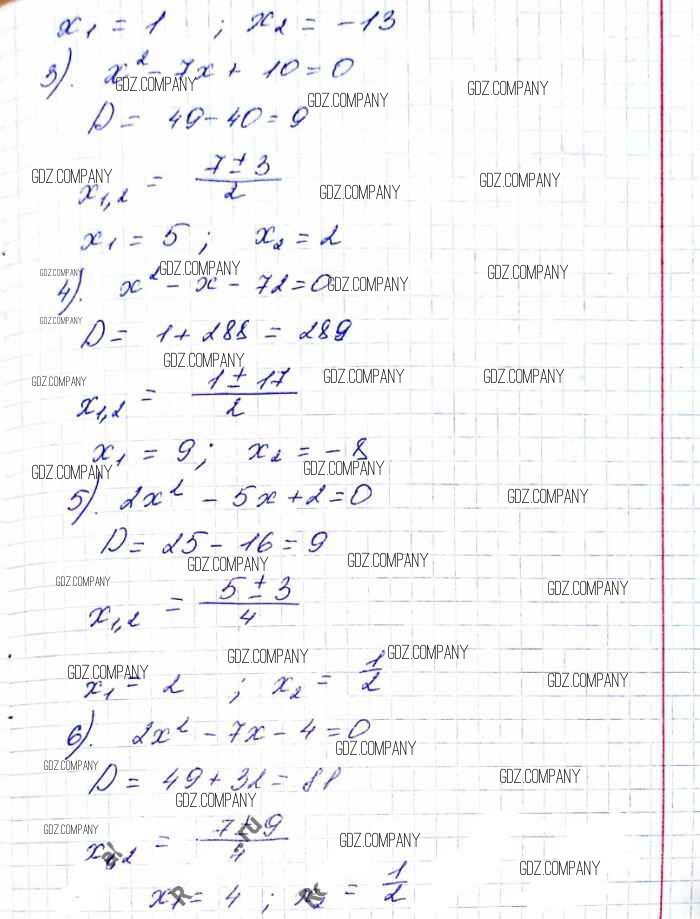 x₁ = 1 ; x₂ = -13
3). x² - 7x + 10 = 0
GDZ.COMPANY GDZ.COMPANY GDZ.COMPANY
D = 49 - 40 = 9
x₁,₂ = (7 ± 3)/2
GDZ.COMPANY GDZ.COMPANY GDZ.COMPANY
x₁ = 5 ; x₂ = 2
GDZ.COMPANY GDZ.COMPANY GDZ.COMPANY GDZ.COMPANY
4). x² - x - 72 = 0
GDZ.COMPANY
D = 1 + 288 = 289
GDZ.COMPANY
x₁,₂ = (1 ± 17)/2
GDZ.COMPANY GDZ.COMPANY GDZ.COMPANY
x₁ = 9 ; x₂ = -8
GDZ.COMPANY GDZ.COMPANY
5). 2x² - 5x + 2 = 0
GDZ.COMPANY
D = 25 - 16 = 9
GDZ.COMPANY GDZ.COMPANY
x₁,₂ = (5 ± 3)/4
GDZ.COMPANY GDZ.COMPANY
GDZ.COMPANY GDZ.COMPANY GDZ.COMPANY GDZ.COMPANY
x₁ = 2 ; x₂ = 1/2
6). 2x² - 7x - 4 = 0
GDZ.COMPANY
D = 49 + 32 = 81
GDZ.COMPANY GDZ.COMPANY GDZ.COMPANY
x₁,₂ = (7 ± 9)/4
GDZ.COMPANY GDZ.COMPANY GDZ.COMPANY
x₁ = 4 ; x₂ = 1/2